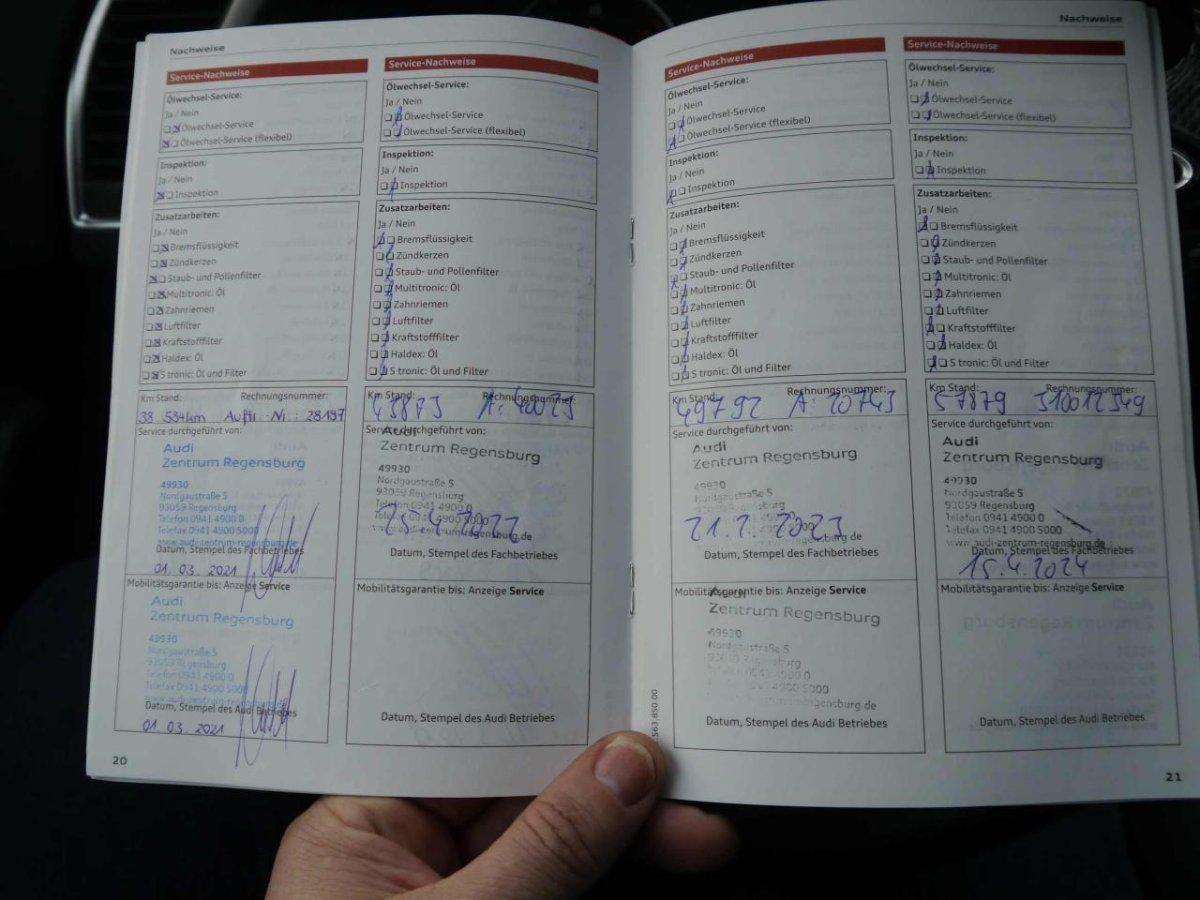 Nachweise
Service-Nachweise
Ölwechsel-Service:
Ja / Nein
Ölwechsel-Service
Ölwechsel-Service (flexibel)
Inspektion:
Ja / Nein
Inspektion
Zusatzarbeiten:
Ja / Nein
Bremsflüssigkeit
Zündkerzen
Staub- und Pollenfilter
Multitronic: Öl
Zahnriemen
Luftfilter
Kraftstofffilter
Haldex: Öl
S tronic: Öl und Filter
Km Stand: Rechnungsnummer:
38 534km Auftr.-Nr.: 28197
Service durchgeführt von:
Audi
Zentrum Regensburg
49930
Nordgaustraße 5
93059 Regensburg
Telefon 0941 4900 0
Telefax 0941 4900 5000
www.audi-zentrum-regensburg.de
Datum, Stempel des Fachbetriebes
01.03.2021
Mobilitätsgarantie bis: Anzeige Service
Audi
Zentrum Regensburg
49930
Nordgaustraße 5
93059 Regensburg
Telefon 0941 4900 0
Telefax 0941 4900 5000
www.audi-zentrum-regensburg.de
Datum, Stempel des Audi Betriebes
01.03.2021
20
Service-Nachweise
Ölwechsel-Service:
Ja / Nein
Ölwechsel-Service
Ölwechsel-Service (flexibel)
Inspektion:
Ja / Nein
Inspektion
Zusatzarbeiten:
Ja / Nein
Bremsflüssigkeit
Zündkerzen
Staub- und Pollenfilter
Multitronic: Öl
Zahnriemen
Luftfilter
Kraftstofffilter
Haldex: Öl
S tronic: Öl und Filter
Km Stand: Rechnungsnummer:
45873 A: 40025
Service durchgeführt von:
Audi
Zentrum Regensburg
49930
Nordgaustraße 5
93059 Regensburg
Telefon 0941 4900 0
Telefax 0941 4900 5000
www.audi-zentrum-regensburg.de
Datum, Stempel des Fachbetriebes
Mobilitätsgarantie bis: Anzeige Service
Datum, Stempel des Audi Betriebes
Nachweise
Service-Nachweise
Ölwechsel-Service:
Ja / Nein
Ölwechsel-Service
Ölwechsel-Service (flexibel)
Inspektion:
Ja / Nein
Inspektion
Zusatzarbeiten:
Ja / Nein
Bremsflüssigkeit
Zündkerzen
Staub- und Pollenfilter
Multitronic: Öl
Zahnriemen
Luftfilter
Kraftstofffilter
Haldex: Öl
S tronic: Öl und Filter
Km Stand: Rechnungsnummer:
49792 A: 20743
Service durchgeführt von:
Audi
Zentrum Regensburg
49930
Nordgaustraße 5
93059 Regensburg
Telefon 0941 4900 0
4900 5000
www.audi-zentrum-regensburg.de
21.2.2023
Datum, Stempel des Fachbetriebes
Mobilitätsgarantie bis: Anzeige Service
Audi
Zentrum Regensburg
49930
Nordgaustraße 5
93059 Regensburg
Telefon 0941 4900 0
0941 4900 5000
www.audi-zentrum-regensburg.de
Datum, Stempel des Audi Betriebes
.563.850.00
Service-Nachweise
Ölwechsel-Service:
Ja / Nein
Ölwechsel-Service
Ölwechsel-Service (flexibel)
Inspektion:
Ja / Nein
Inspektion
Zusatzarbeiten:
Ja / Nein
Bremsflüssigkeit
Zündkerzen
Staub- und Pollenfilter
Multitronic: Öl
Zahnriemen
Luftfilter
Kraftstofffilter
Haldex: Öl
S tronic: Öl und Filter
Km Stand: Rechnungsnummer:
57879 310012349
Service durchgeführt von:
Audi
Zentrum Regensburg
49930
Nordgaustraße 5
93059 Regensburg
Telefon 0941 4900 0
Telefax 0941 4900 5000
www.audi-zentrum-regensburg.de
Datum, Stempel des Fachbetriebes
15.4.2024
Mobilitätsgarantie bis: Anzeige Service
Datum, Stempel des Audi Betriebes
21